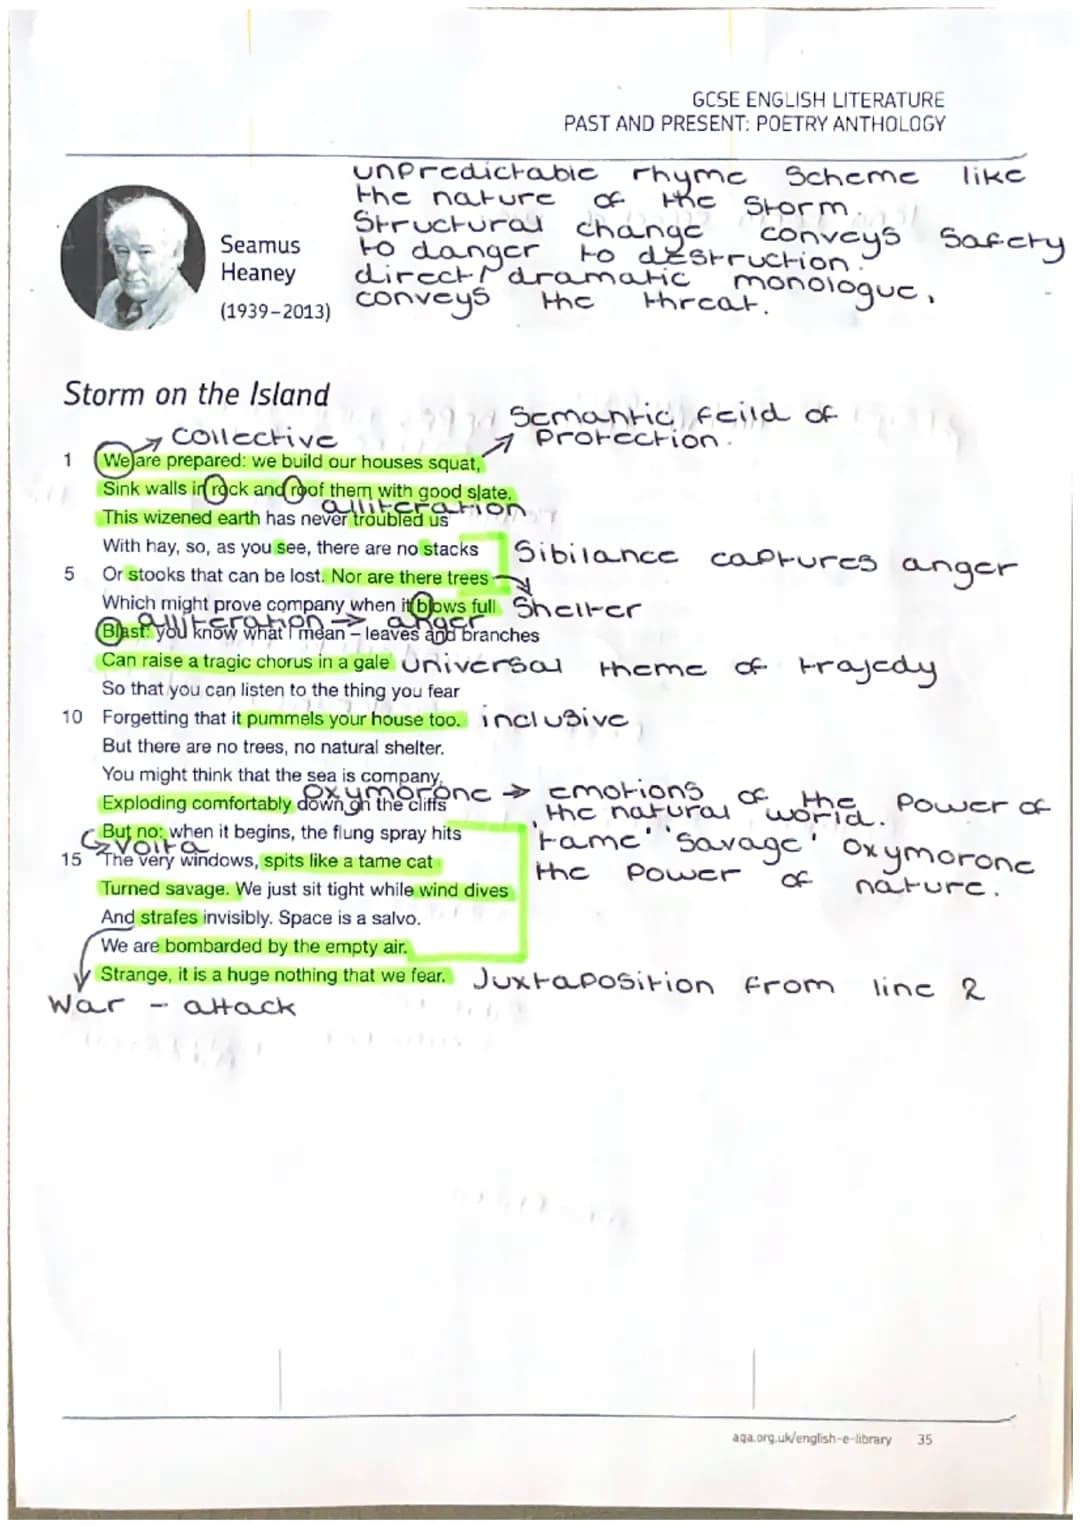 GCSE ENGLISH LITERATURE
PAST AND PRESENT: POETRY ANTHOLOGY
unpredictable rhyme scheme like
the nature of the storm
Structural change conveys safety
to danger to destruction.
direct/dramatic monologue,
conveys the threat.
Seamus
Heaney
(1939–2013)
Storm on the Island
Semantic feild of
Protection.
Collective
1 We are prepared: we build our houses squat,
Sink walls in rock and roof them with good slate.
alliteration
This wizened earth has never troubled us
With hay, so, as you see, there are no stacks
Sibilance captures anger
5 Or stooks that can be lost. Nor are there trees
Which might prove company when it blows full
Shelter
alliteration → anger
Blast: you know what I mean – leaves and branches
Can raise a tragic chorus in a gale
universal theme of trajedy
So that you can listen to the thing you fear
10 Forgetting that it pummels your house too.
inclusive
But there are no trees, no natural shelter.
You might think that the sea is company,
oxymorone → emotions of the power of
the natural world.
Exploding comfortably down on the cliffs
But no: when it begins, the flung spray hits
volta
'tame' 'savage' oxymorone
the power of nature.
15 The very windows, spits like a tame cat
Turned savage. We just sit tight while wind dives
And strafes invisibly. Space is a salvo.
We are bombarded by the empty air.
Strange, it is a huge nothing that we fear.
Juxtaposition from line 2
War - attack
aqa.org.uk/english-e-library 35